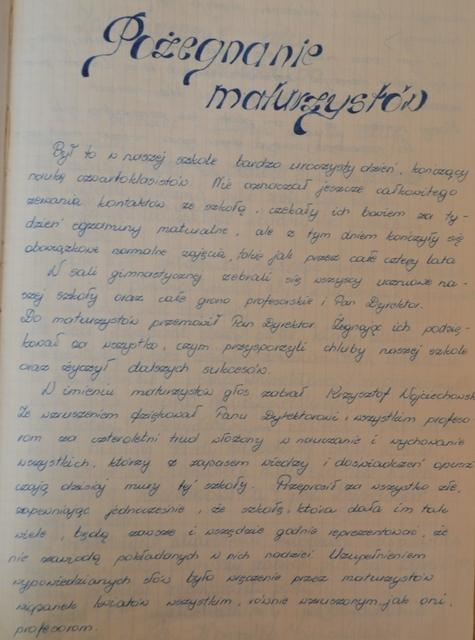 Pożegnanie
maturzystów
Był to w naszej szkole bardzo uroczysty dzień, kończący
naukę czwartoklasistów. Nie oznaczał jeszcze całkowitego
zerwania kontaktów ze szkołą, czekały ich bowiem za ty-
dzień egzaminy maturalne, ale z tym dniem kończyły się
obowiązkowe normalne zajęcia, takie jak przez całe cztery lata.
W sali gimnastycznej zebrali się wszyscy uczniowie na-
szej szkoły oraz całe grono profesorskie i Pan Dyrektor.
Do maturzystów przemówił Pan Dyrektor. Żegnając ich podzię-
kował za wszystko, czym przysporzyli chluby naszej szkole
oraz życzył dalszych sukcesów.
W imieniu maturzystów głos zabrał Krzysztof Wojciechowsk
Ze wzruszeniem dziękował Panu Dyrektorowi i wszystkim profeso
rom za czteroletni trud włożony w nauczanie i wychowanie
wszystkich, którzy z zapasem wiedzy i doświadczeń opusz
czają dzisiaj mury tej szkoły. Przeprosił za wszystko złe,
zapewniając jednocześnie, że szkołę, która dała im tak
wiele, będą zawsze i wszędzie godnie reprezentować, że
nie zawiodą pokładanych w nich nadziei. Uzupełnieniem
wypowiedzianych słów było wręczenie przez maturzystów
wiązanek kwiatów wszystkim, równie wzruszonym jak oni,
profesorom.